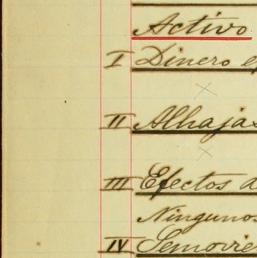 Activo
I Dinero e
II Alhajas
III Efectos d
Ningunos
IV Semovie